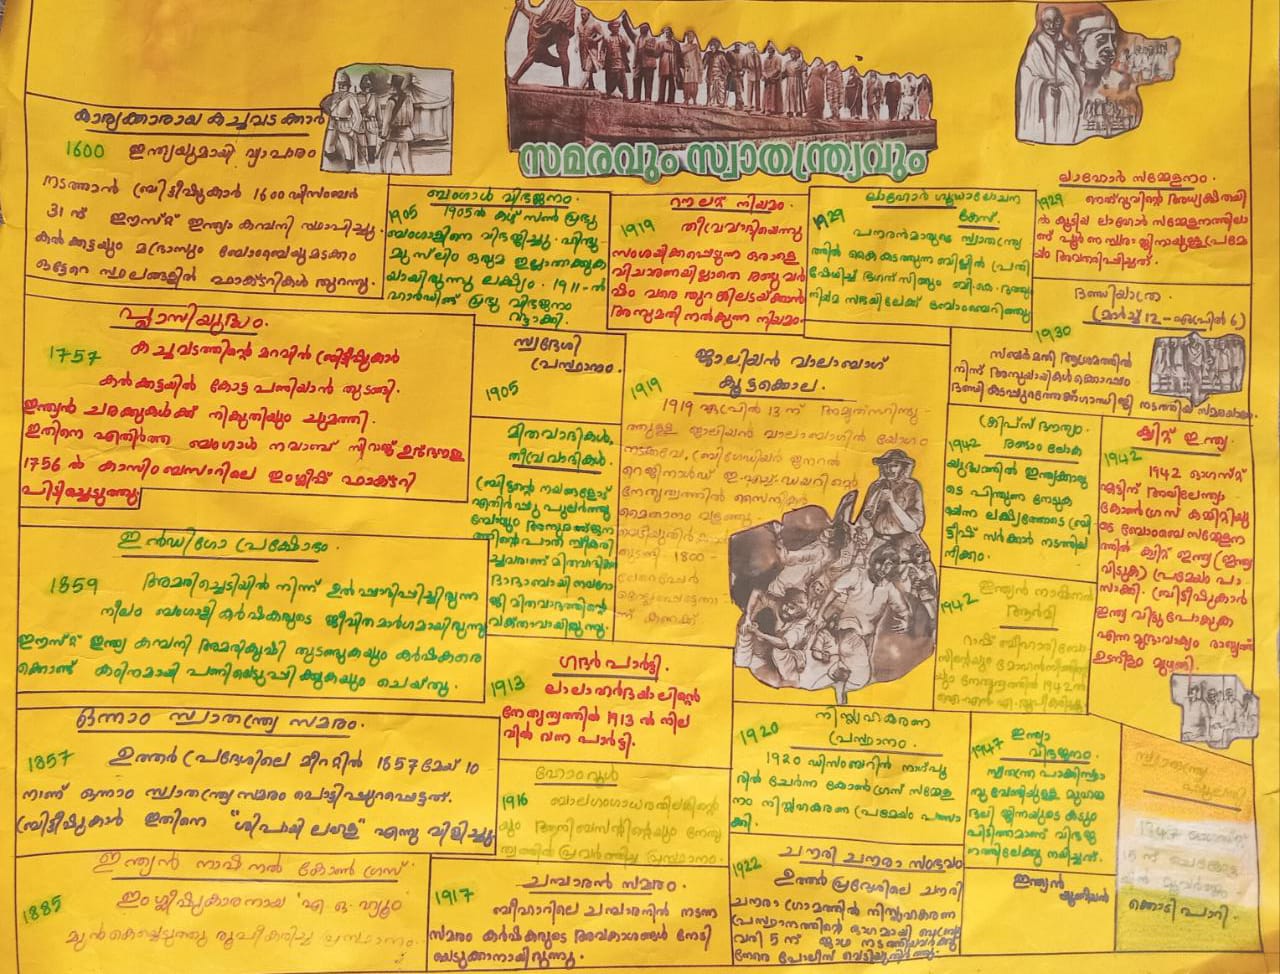 സമരവും സ്വാതന്ത്ര്യവും
കാര്യക്കാരായ കച്ചവടക്കാർ
1600 ഇന്ത്യയുമായി വ്യാപാരം
നടത്താൻ ബ്രിട്ടീഷുകാർ 1600 ഡിസംബർ
31 ന് ഈസ്റ്റ് ഇന്ത്യാ കമ്പനി സ്ഥാപിച്ചു.
കൽക്കട്ടയും മദ്രാസും ബോംബെയുമടക്കം
ഒട്ടേറെ സ്ഥലങ്ങളിൽ ഫാക്ടറികൾ തുറന്നു.
ബംഗാൾ വിഭജനം.
1905 1905ൽ കഴ്സൺ പ്രഭു
ബംഗാളിനെ വിഭജിച്ചു. ഹിന്ദു-
മുസ്ലിം ഒരുമ ഇല്ലാതാക്കുക
യായിരുന്നു ലക്ഷ്യം. 1911-ൽ
ഹാർഡിങ് പ്രഭു വിഭജനം
റൗലറ്റ് നിയമം.
1919 തീവ്രവാദിയെന്നു
സംശയിക്കപ്പെടുന്ന ഒരാളെ
വിചാരണയില്ലാതെ രണ്ടു വർ
ഷം വരെ തുറങ്കിലടയ്ക്കാൻ
അനുമതി നൽകുന്ന നിയമം.
ലാഹോർ ഗൂഢാലോചന
കേസ്.
1929 പൗരൻമാരുടെ സ്വാതന്ത്ര്യ
ത്തിൽ കൈകടത്തുന്ന ബില്ലിൽ പ്രതി
ഷേധിച്ച് ഭഗത് സിങ്ങും ബി.കെ. ദത്തും
നിയമ സഭയിലേക്ക് ബോംബെറിഞ്ഞു
ലാഹോർ സമ്മേളനം.
1929 നെഹ്റുവിന്റെ അധ്യക്ഷതയി
ൽ കൂടിയ ലാഹോർ സമ്മേളനത്തിലാ
ണ് പൂർണ സ്വരാജിനായുള്ള പ്രമേ
യം അവതരിപ്പിച്ചത്.
ദണ്ഡിയാത്ര.
(മാർച്ച് 12 - ഏപ്രിൽ 6)
1930 സബർമതി ആശ്രമത്തിൽ
നിന്ന് അനുയായികൾക്കൊപ്പം
ദണ്ഡി കടപ്പുറത്തേക്ക് ഗാന്ധിജി നടത്തിയ സമരയാത്ര.
പ്ലാസിയുദ്ധം.
1757 കച്ചവടത്തിന്റെ മറവിൽ ബ്രിട്ടീഷുകാർ
കൽക്കട്ടയിൽ കോട്ട പണിയാൻ തുടങ്ങി.
ഇന്ത്യൻ ചരക്കുകൾക്ക് നികുതിയും ചുമത്തി.
ഇതിനെ എതിർത്ത ബംഗാൾ നവാബ് സിറാജ് ഉദ് ദൗള
1756 ൽ കാസിം ബസാറിലെ ഇംഗ്ലീഷ് ഫാക്ടറി
പിടിച്ചെടുത്തു.
സ്വദേശി
പ്രസ്ഥാനം.
1905
ജാലിയൻ വാലാബാഗ്
കൂട്ടക്കൊല.
1919
1919 ഏപ്രിൽ 13 ന് അമൃത്സറിനടു-
ത്തുള്ള ജാലിയൻ വാലാബാഗിൽ യോഗം
നടക്കവേ, ബ്രിഗേഡിയർ ജനറൽ
റെജിനാൾഡ് ഇ.എച്ച്. ഡയറിന്റെ
നേതൃത്വത്തിൽ സൈനികർ
മൈതാനം വളഞ്ഞു.
തുടങ്ങി 1800 -
മിതവാദികൾ,
തീവ്രവാദികൾ.
ബ്രിട്ടന്റെ നയങ്ങളോട്
എതിർപ്പു പുലർത്തു
മ്പോഴും അനുരഞ്ജന
ത്തിന്റെ പാത സ്വീകരി
ച്ചവരാണ് മിതവാദികൾ.
ദാദാബായി നവറോ
ജി മിതവാദത്തിന്റെ
വക്താവായിരുന്നു.
ക്രിപ്സ് ദൗത്യം.
1942 രണ്ടാം ലോക
യുദ്ധത്തിൽ ഇന്ത്യക്കാരു
ടെ പിന്തുണ നേടുക
യെന്ന ലക്ഷ്യത്തോടെ ബ്രി
ട്ടീഷ് സർക്കാർ നടത്തിയ
നീക്കം.
ക്വിറ്റ് ഇന്ത്യ
1942
1942 ഓഗസ്റ്റ്
എട്ടിന് അഖിലേന്ത്യാ
കോൺഗ്രസ് കമ്മിറ്റിയു
ടെ ബോംബെ സമ്മേളന
ത്തിൽ ക്വിറ്റ് ഇന്ത്യ (ഇന്ത്യ
വിടുക) പ്രമേയം പാ-
സാക്കി. ബ്രിട്ടീഷുകാർ
ഇന്ത്യ വിട്ടുപോവുക
എന്ന മുദ്രാവാക്യം രാജ്യത്ത്
ഉടനീളം മുഴങ്ങി.
ഇൻഡിഗോ പ്രക്ഷോഭം.
1859 അമരിച്ചെടിയിൽ നിന്ന് ഉൽപ്പാദിപ്പിച്ചിരുന്ന
നീലം ബംഗാളി കർഷകരുടെ ജീവിതമാർഗമായിരുന്നു
ഈസ്റ്റ് ഇന്ത്യ കമ്പനി അമരികൃഷി തുടങ്ങുകയും കർഷകരെ
ക്കൊണ്ട് കഠിനമായി പണിയെടുപ്പിക്കുകയും ചെയ്തു.
ഇന്ത്യൻ നാഷണൽ
ആർമി
1942
റാഷ് ബിഹാരി ബോ
ഗദർ പാർട്ടി.
1913 ലാലാ ഹർദയാലിന്റെ
നേതൃത്വത്തിൽ 1913 ൽ നില
വിൽ വന്ന പാർട്ടി.
ഒന്നാം സ്വാതന്ത്ര്യ സമരം.
1857 ഉത്തർ പ്രദേശിലെ മീററ്റിൽ 1857 മേയ് 10
നാണ് ഒന്നാം സ്വാതന്ത്ര്യസമരം പൊട്ടിപ്പുറപ്പെട്ടത്.
ബ്രിട്ടീഷുകാർ ഇതിനെ "ശിപായി ലഹള" എന്നു വിളിച്ചു
ഹോംറൂൾ
1916 ബാലഗംഗാധര തിലകിന്റെ
യും ആനിബസന്റിന്റെയും നേതൃ
ത്വത്തിൽ പ്രവർത്തിച്ച പ്രസ്ഥാനം.
നിസ്സഹകരണ
പ്രസ്ഥാനം.
1920
1920 ഡിസംബറിൽ നാഗ്പൂ
രിൽ ചേർന്ന കോൺഗ്രസ് സമ്മേള
നം നിസ്സഹകരണ പ്രമേയം പാസാ
ക്കി.
1947 ഇന്ത്യാ
വിഭജനം.
സ്വതന്ത്ര പാക്കിസ്ഥാ
നു വേണ്ടിയുള്ള മുഹമ്മ
ദലി ജിന്നയുടെ കടും
പിടിത്തമാണ് വിഭജ
നത്തിലേക്കു നയിച്ചത്.
ഇന്ത്യൻ
യൂണിയൻ
സ്വാതന്ത്ര്യ
1947 ഓഗസ്റ്റ്
15 ന്
കൊടി പാറി.
ഇന്ത്യൻ നാഷനൽ കോൺഗ്രസ്
1885 ഇംഗ്ലീഷുകാരനായ എ.ഒ. ഹ്യൂം
മുൻകൈയെടുത്തു രൂപീകരിച്ച പ്രസ്ഥാനം.
ചമ്പാരൻ സമരം.
1917 ബീഹാറിലെ ചമ്പാരനിൽ നടന്ന
സമരം കർഷകരുടെ അവകാശങ്ങൾ നേടി
യെടുക്കാനായിരുന്നു.
ചൗരി ചൗരാ സംഭവം
1922 ഉത്തർ പ്രദേശിലെ ചൗരി
ചൗരാ ഗ്രാമത്തിൽ നിസ്സഹകരണ
പ്രസ്ഥാനത്തിന്റെ ഭാഗമായി ഫെബ്രു
വരി 5 ന് ജാഥ നടത്തിയവർക്കു
നേരെ പോലീസ് വെടിയുതിർത്തു.